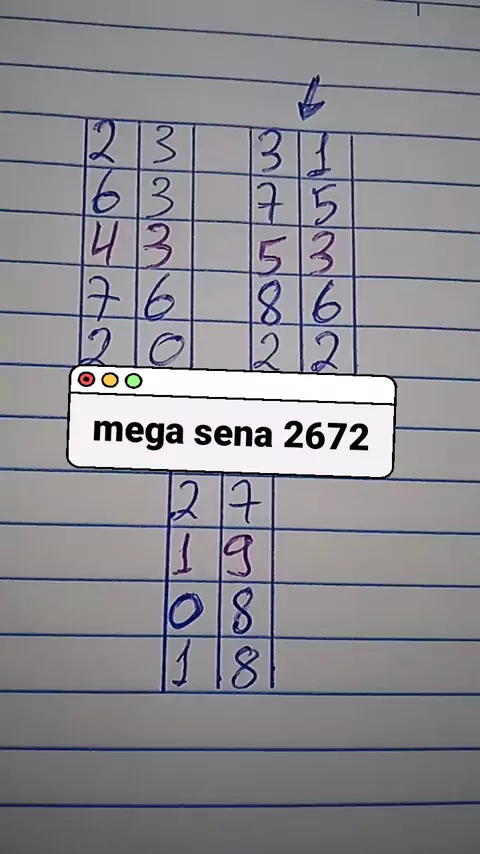 2 3 3 1
6 3 7 5
4 3 5 3
7 6 8 6
2 0 2 2
mega sena 2672
2 7
1 9
0 8
1 8